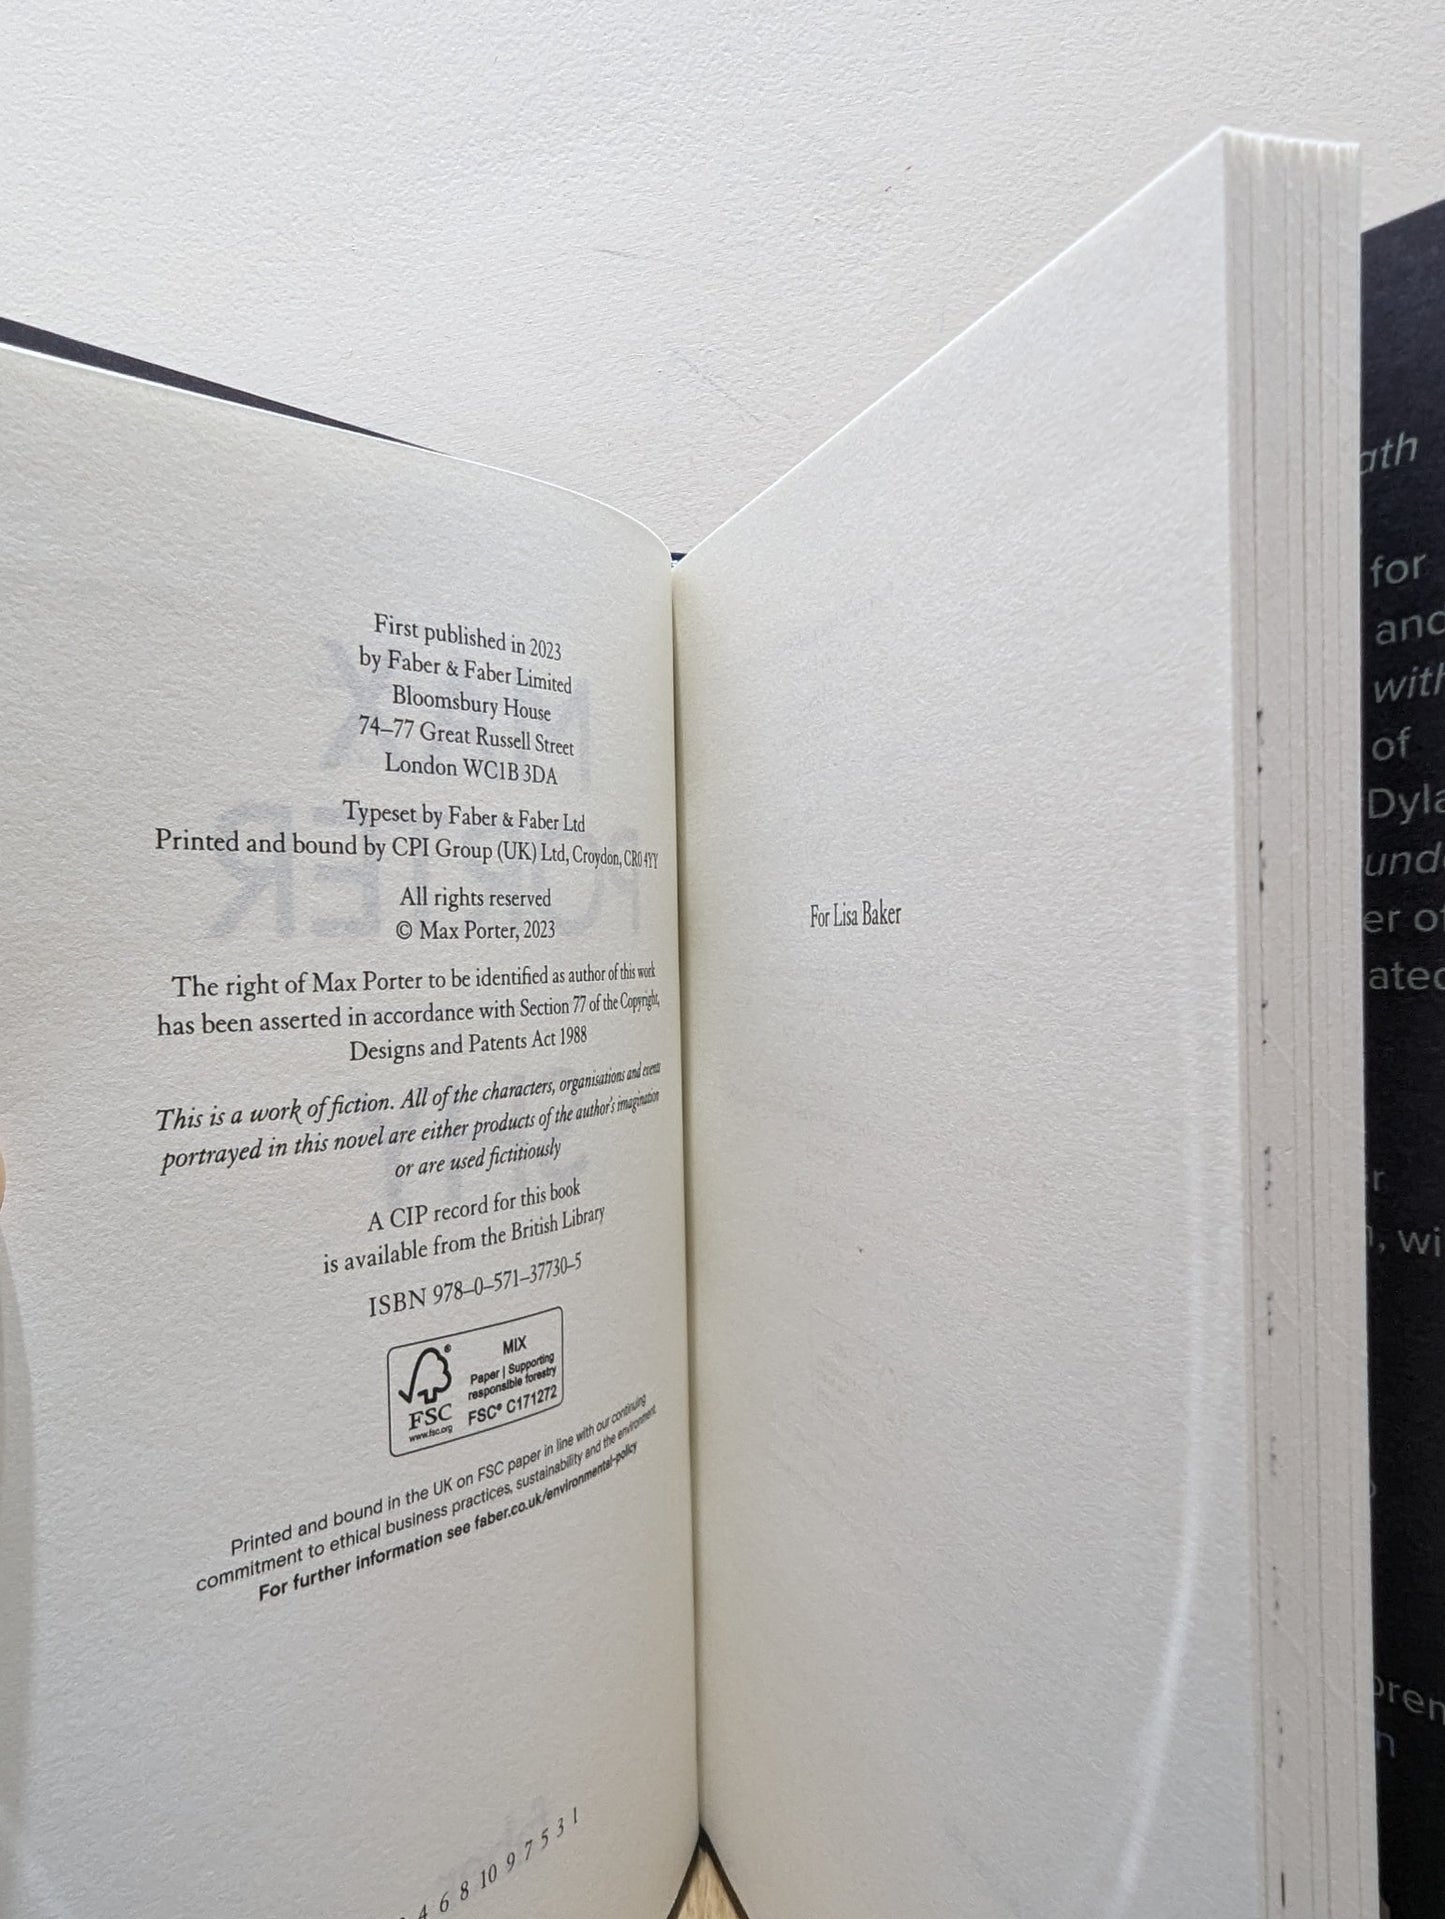 First published in 2023
by Faber & Faber Limited
Bloomsbury House
74–77 Great Russell Street
London WC1B 3DA
Typeset by Faber & Faber Ltd
Printed and bound by CPI Group (UK) Ltd, Croydon, CR0 4YY
All rights reserved
© Max Porter, 2023
The right of Max Porter to be identified as author of this work
has been asserted in accordance with Section 77 of the Copyright,
Designs and Patents Act 1988
This is a work of fiction. All of the characters, organisations and events
portrayed in this novel are either products of the author's imagination
or are used fictitiously
A CIP record for this book
is available from the British Library
ISBN 978–0–571–37730–5
MIX
Paper | Supporting
responsible forestry
FSC® C171272
FSC
www.fsc.org
Printed and bound in the UK on FSC paper in line with our continuing
commitment to ethical business practices, sustainability and the environment.
For further information see faber.co.uk/environmental-policy
4 6 8 10 9 7 5 3 1
For Lisa Baker
ath
for
and
with
of
Dyla
und
er of
ated
r
, wi
pren
n